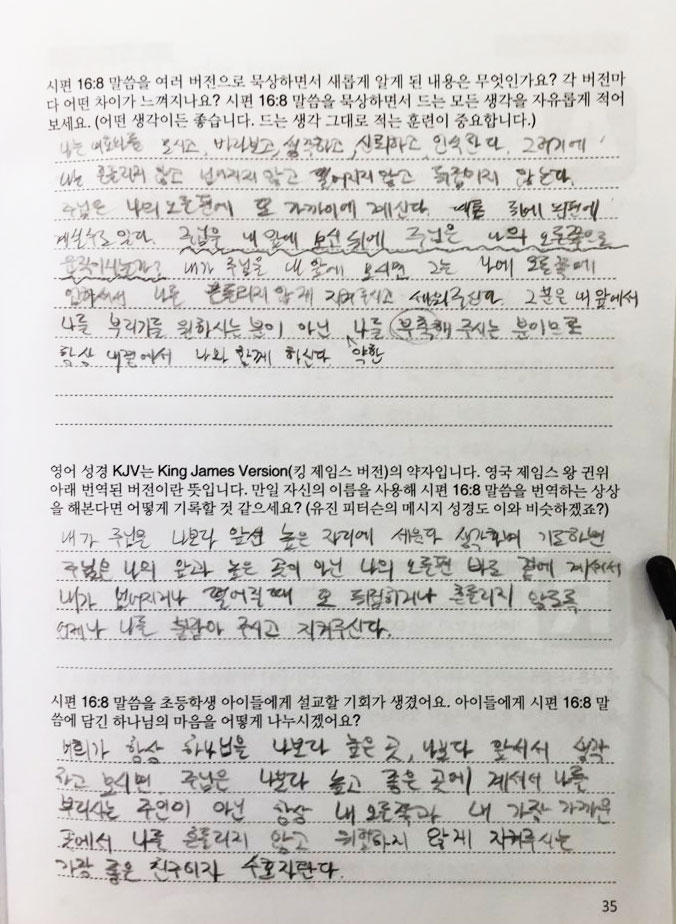 시편 16:8 말씀을 여러 버전으로 묵상하면서 새롭게 알게 된 내용은 무엇인가요? 각 버전마
다 어떤 차이가 느껴지나요? 시편 16:8 말씀을 묵상하면서 드는 모든 생각을 자유롭게 적어
보세요. (어떤 생각이든 좋습니다. 드는 생각 그대로 적는 훈련이 중요합니다.)
나는 여호와를 모시고, 바라보고, 생각하고, 신뢰하고, 인식한다. 그러기에
나는 흔들리지 않고 넘어지지 않고 떨어지지 않고 뒤집이지 않는다.
주님은 나의 오른편에 또 가까이에 계신다. 때론 뒤에 왼편에
계실수도 있다. 주님을 내 앞에 모신 뒤에 주님은 나의 오른쪽으로
움직이시는가? 내가 주님을 내 앞에 모시면 그는 나에 오른쪽에
임하셔서 나를 흔들리지 않게 지켜주시고 세워주신다. 그분은 내 앞에서
나를 부리기를 원하시는 분이 아닌 나를 부축해 주시는 분이므로
항상 내곁에서 나와 함께 하신다. 약한
영어 성경 KJV는 King James Version(킹 제임스 버전)의 약자입니다. 영국 제임스 왕 권위
아래 번역된 버전이란 뜻입니다. 만일 자신의 이름을 사용해 시편 16:8 말씀을 번역하는 상상
을 해본다면 어떻게 기록할 것 같으세요? (유진 피터슨의 메시지 성경도 이와 비슷하겠죠?)
내가 주님을 나보다 앞선 높은 자리에 세운다 생각하며 기도하면
주님은 나의 앞과 높은 곳이 아닌 나의 오른편 바로 곁에 계셔서
내가 넘어지거나 떨어질때 또 뒤집히거나 흔들리지 않도록
언제나 나를 붙잡아 주시고 지켜주신다.
시편 16:8 말씀을 초등학생 아이들에게 설교할 기회가 생겼어요. 아이들에게 시편 16:8 말
씀에 담긴 하나님의 마음을 어떻게 나누시겠어요?
항상 하나님을 나보다 높은 곳, 나보다 앞서서 생각
하고 모시면 주님은 나보다 높고 좋은 곳에 계셔서 나를
부리시는 주인이 아닌 항상 내 오른쪽과 내 가장 가까운
곳에서 나를 흔들리지 않고 위험하지 않게 지켜주시는
가장 좋은 친구이자 수호자란다.
35